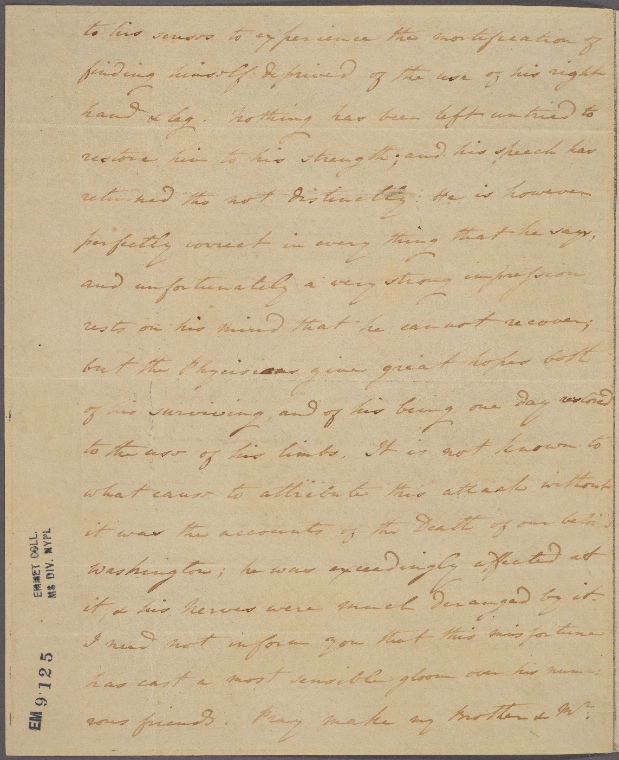 to his senses to experience the mortification of
finding himself deprived of the use of his right
hand & leg. Nothing has been left untried to
restore him to his strength; and his speech has
returned tho not distinctly: He is however
perfectly correct in every thing that he says,
and unfortunately a very strong impression
rests on his mind that he cannot recover;
but the Physicians give great hopes both
of his surviving, and of his being one day restored
to the use of his limbs. It is not known to
what cause to attribute this attack without
it was the accounts of the Death of our belov'd
Washington; he was exceedingly affected at
it, & his nerves were much deranged by it.
I need not inform you that this misfortune
has cast a most sensible gloom over his nume:
rous friends. Pray make my Brother & Mr.
EMMET COLL.
MS DIV. NYPL
EM 9125